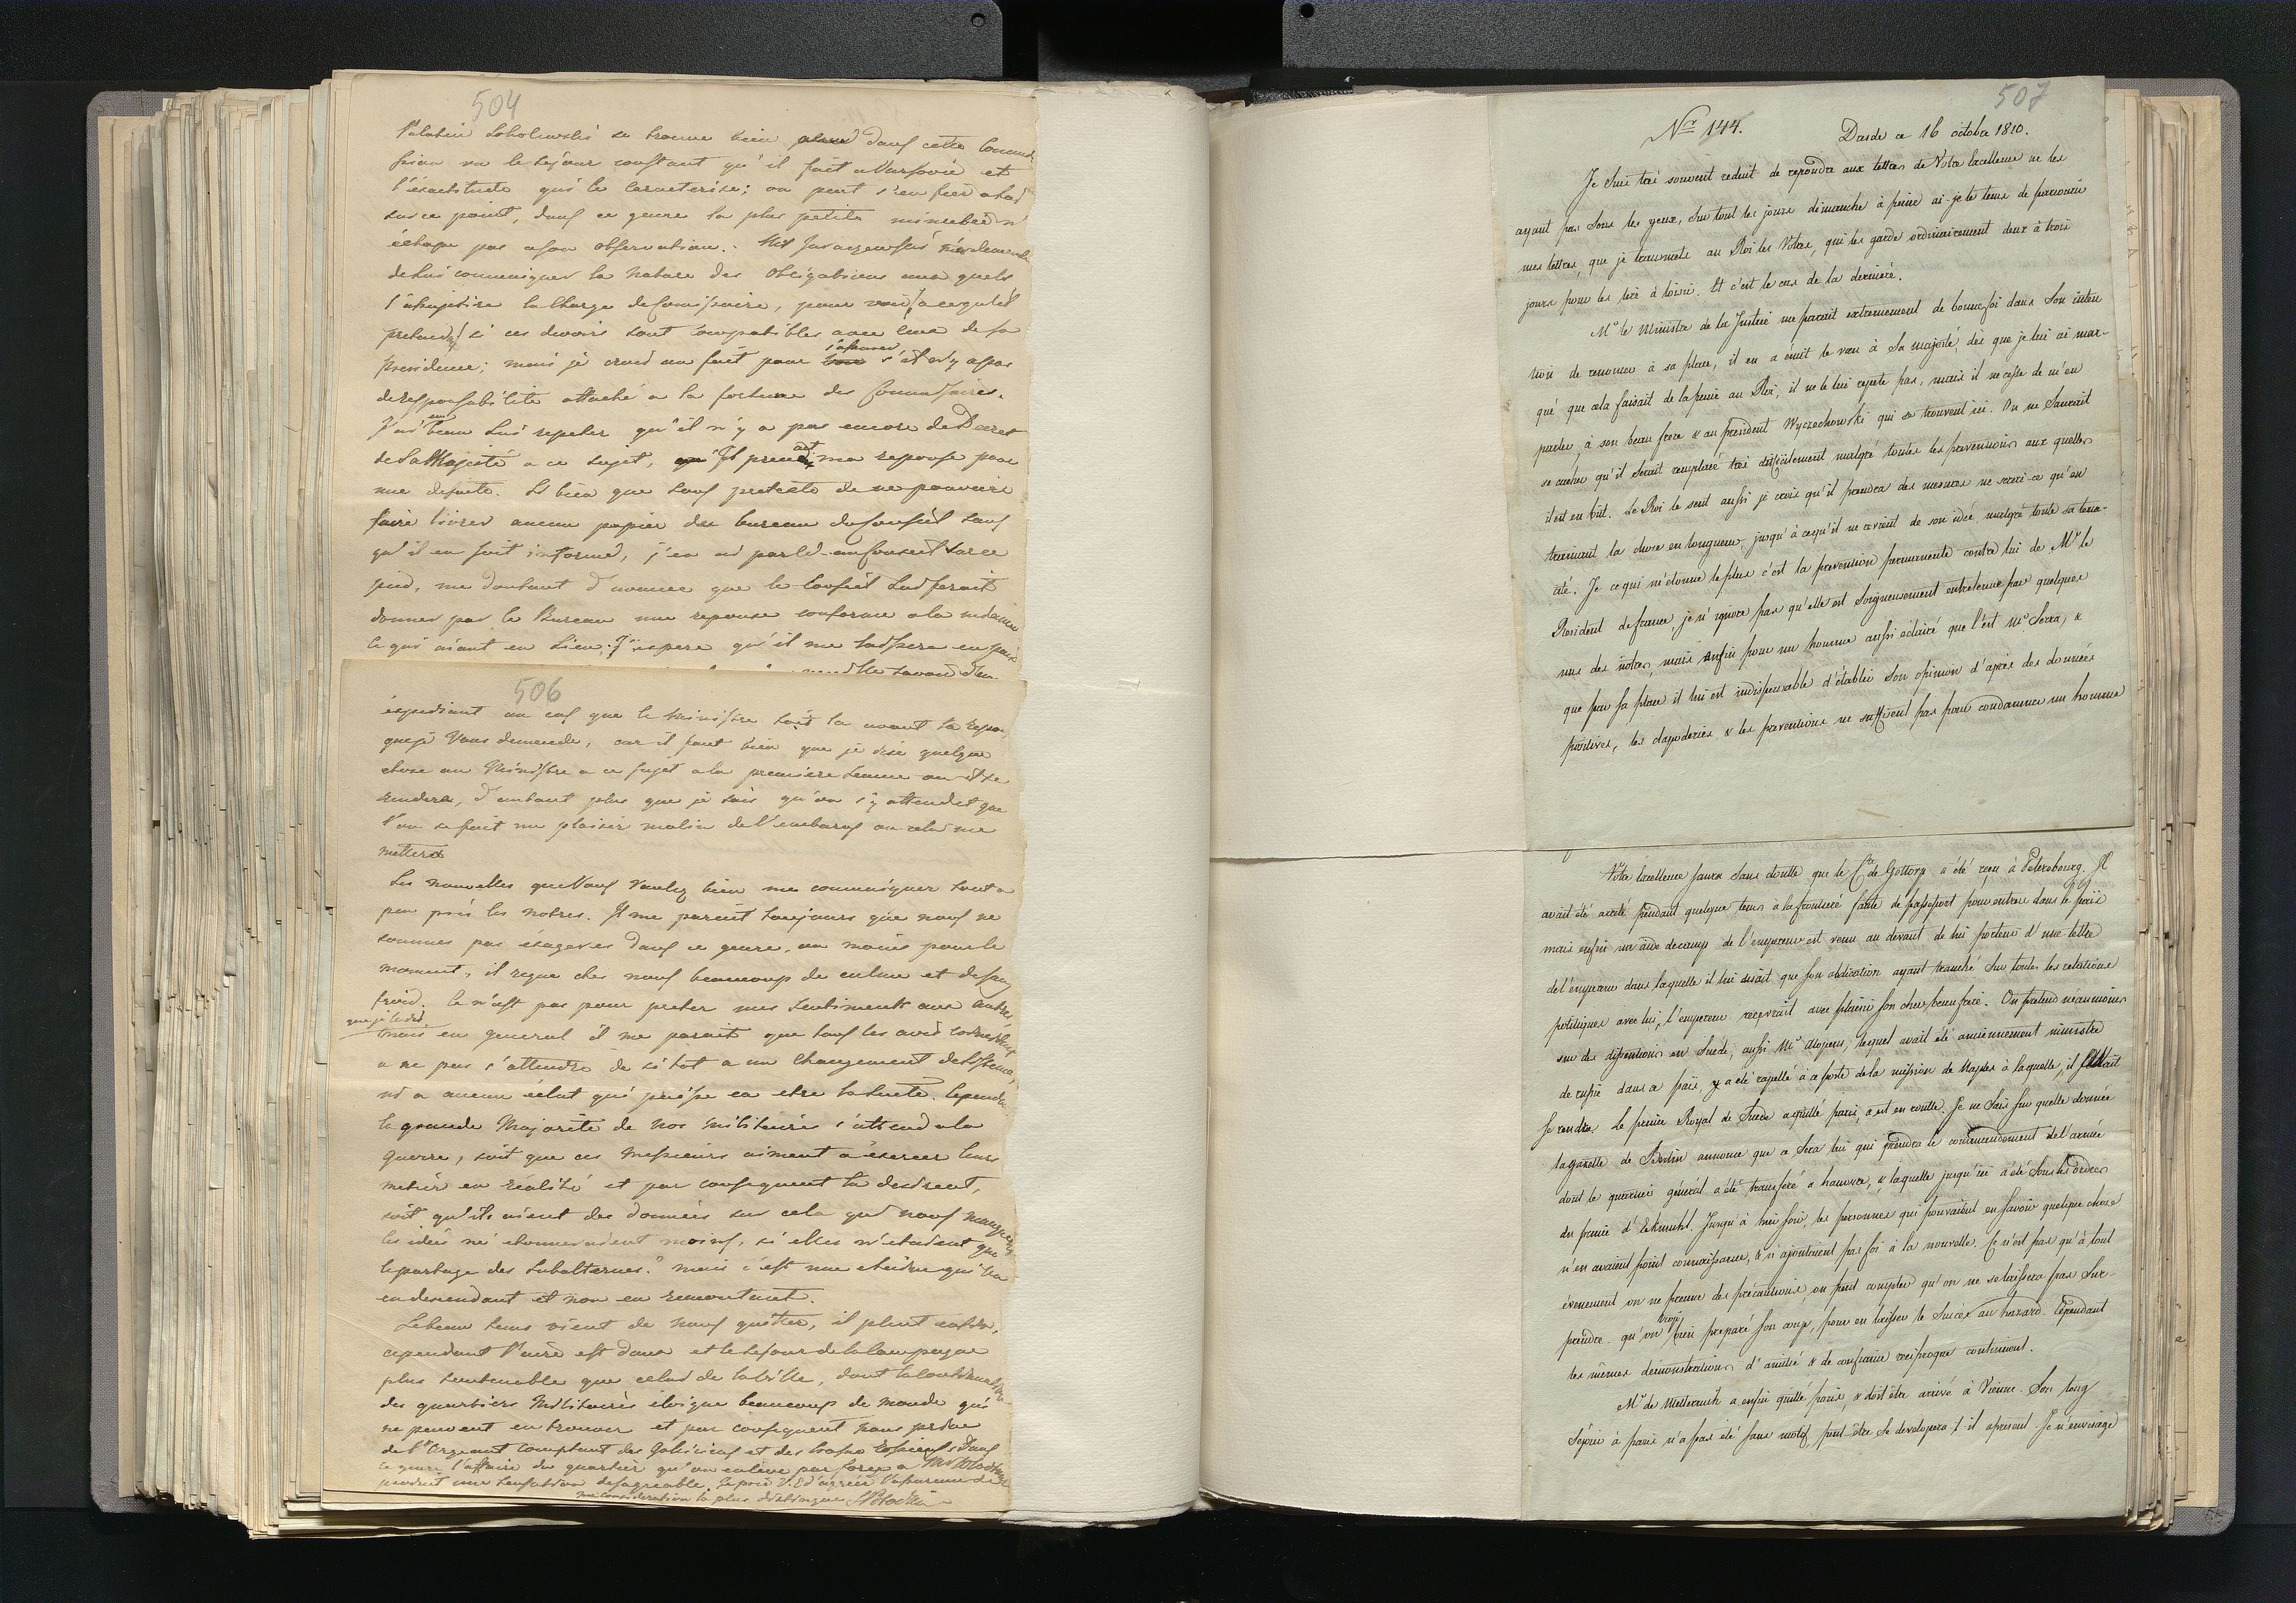 504
Palatin Sobolewski se trouve bien placé dans cette commis
sion vu le sejour constant qu'il fait a Varsovie et
l'exactitude qui le caracterise; on peut s'en fier a lui
sur ce point, dans ce genre la plus petite
échape pas a son observation.
de lui communiquer la nature des obligations aux quels
s'assujetire la charge de Comissaire, pour voir, a ce qu'il
pretend, si ces devoirs sont compatibles avec ceux de sa
presidence; mais je crois au fait pour s'assurer s'il n'y a pas
de responsabilité attaché a la fortune des Commissaires.
J'ai eu beau lui repeter qu'il n'y a pas encore de Decret
de Sa Majesté a ce sujet, Il prend ma reponse pour
une defaite. Si bien que sous pretexte de ne pouvoir
faire livrer aucun papier du bureau du Conseil sans
qu'il en soit informé, j'en ai parlé au Conseil sur ce
pied, me doutant d'avance que le Conseil lui feroit
donner par le Bureau une reponse conforme a la mienne
ce qui aiant eu lieu, J'espere qu'il me laissera en paix
506
expediant au cas que le Ministre soit la avant la repon
que je Vous demande, car il faut bien que je dise quelque
chose au Ministre a ce sujet a la premiere seance ou il se
rendera, d'autant plus que je sais qu'on s'y attendet que
l'on se fait un plaisir malin de l'embaras ou cela me
mettera
Les nouvelles que Vous voulez bien me communiquer sont a
peu près les notres. Il me parait toujours que nous ne
sommes pas exagerés dans ce genre, au moins pour le
moment, il regne chez nous beaucoup de calme et de sang
froid. Ce n'est pas pour preter mes sentiments aux autres
que je le dis
mais en general il me parait que tous les avis
a ne pas s'attendre de si tot a un changement de Sisteme,
ni a aucun éclat qui puisse en etre la suite. Cependant
la grande Majorité de nos Militaires s'attend a la
guerre, soit que ces Messieurs aiment a exercer leur
metier en réalité et par consequent la desirent,
soit qu'ils aient des données sur cela qui nous manquent
les idées m'etonneraient moins, si elles n'etaient que
le partage des Subalternes. mais c'est une chaine qui va
en descendant et non en remontant.
Le beau tems vient de nous quitter, il pleut
cependant l'air est doux et le sejour de la Campagne
plus soutenable que celui de la ville, dont la
des quartiers Militaires éloigne beaucoup de monde qui
ne peuvent en trouver et par consequent nous perdons
de l'Argeant comptant des Galiciens et des Dans
ce genre l'affaire du quartier qu'on enleve par force a
produit une sensation desagreable. Je prie V. E d'agréer l'assurance de
ma consideration la plus distinguée
507
Nr 144.
Dresde ce 16 octobre 1810.
Je suis trés souvent reduit de repondre aux lettres de Votre Excellence ne les
ayant pas sous les yeux, surtout les jours dimanche à peine ai-je le tems de parcourir
mes lettres, que je transmets au Roi les Votres, qui les garde ordinairement deux à trois
jours pour les lire à loisir. Et c'est le cas de la derniere.
Mr le Ministre de la Justice me parait extremement de bonne foi dans son inten
tion de renoncer à sa place, il en a émit le vœu à Sa Majesté, dès que je lui ai mar-
qué que cela faisait de la peine au Roi, il ne le lui repete pas, mais il ne cesse de m'en
parler, à son beau frere & au president Wyczechowski qui se trouvent ici. On ne saurait
se cacher qu'il serait remplacé très difficilement malgré toutes les preventions aux quelles
il est en bût. Le Roi le sent aussi je crois qu'il prendra des mesures ne serai-ce qu'en
trainant la chose en longueur, jusqu'à ce qu'il ne revient de son idée, malgré toute sa tena-
cité. Ce qui m'étonne le plus c'est la prevention permanente contre lui de Mr le
Resident de france, je n'ignore pas qu'elle est soigneusement entretenue par quelques
uns des notres, mais enfin pour un homme aussi éclairé que l'est Mr Serra, &
que par sa place il lui est indispensable d'établir son opinion d'après des données
positives, les clapoderies & les preventions ne suffisent pas pour condamner un homme
Votre Excellence saura sans doutte que le Cte de Gottorp a été reçu à Petersbourg. Il
avait été arreté pendant quelque tems a la frontiere faute de passeport pour entrer dans le païs
mais enfin un aide de camp de l'empereur est venu au devant de lui porteur d'une lettre
de l'empereur dans laquelle il lui disait que son abdication ayant tranché sur toutes les relations
politiques avec lui, l'empereur recevrait avec plaisir son cher beaufrere. On pretend néanmoins
sur des dissentions en Suede, aussi Mr Alopeus, lequel avait été anciennement ministre
de russie dans ce païs, y a été rapellé à ce poste de la mission de Naples à laquelle, il fallait
se rendre. Le prince Royal de Suede a quitté paris, & est en routte. Je ne sais sur quelle donnée
la gazette de Berlin annonce que ce sera lui qui prendra le commendement de l'armée
dont le quartier général a été transferé a hanovre, & laquelle jusqu'ici a été sous les ordres
du prince d'Ekmuhl. Jusqu'à hier soir, les personnes qui pouvaient en savoir quelque chose
n'en avaient point connaissance, & n'ajoutaient pas foi à la nouvelle. Ce n'est pas qu'à tout
évenement on ne prenne des précautions, on peut compter qu'on ne se laissera pas sur-
prendre. qu'on a trop bien preparé son coup, pour en laisser le succes au hazard. Cependant
les mêmes demonstrations d'amitié & de confiance reciproque continuent.
Mr de Metternich a enfin quitté paris, & doit être arrivé à Vienne. Son long
Séjour à paris n'a pas été sans motif, peut-être se developera-t-il apresent. Je n'envisage